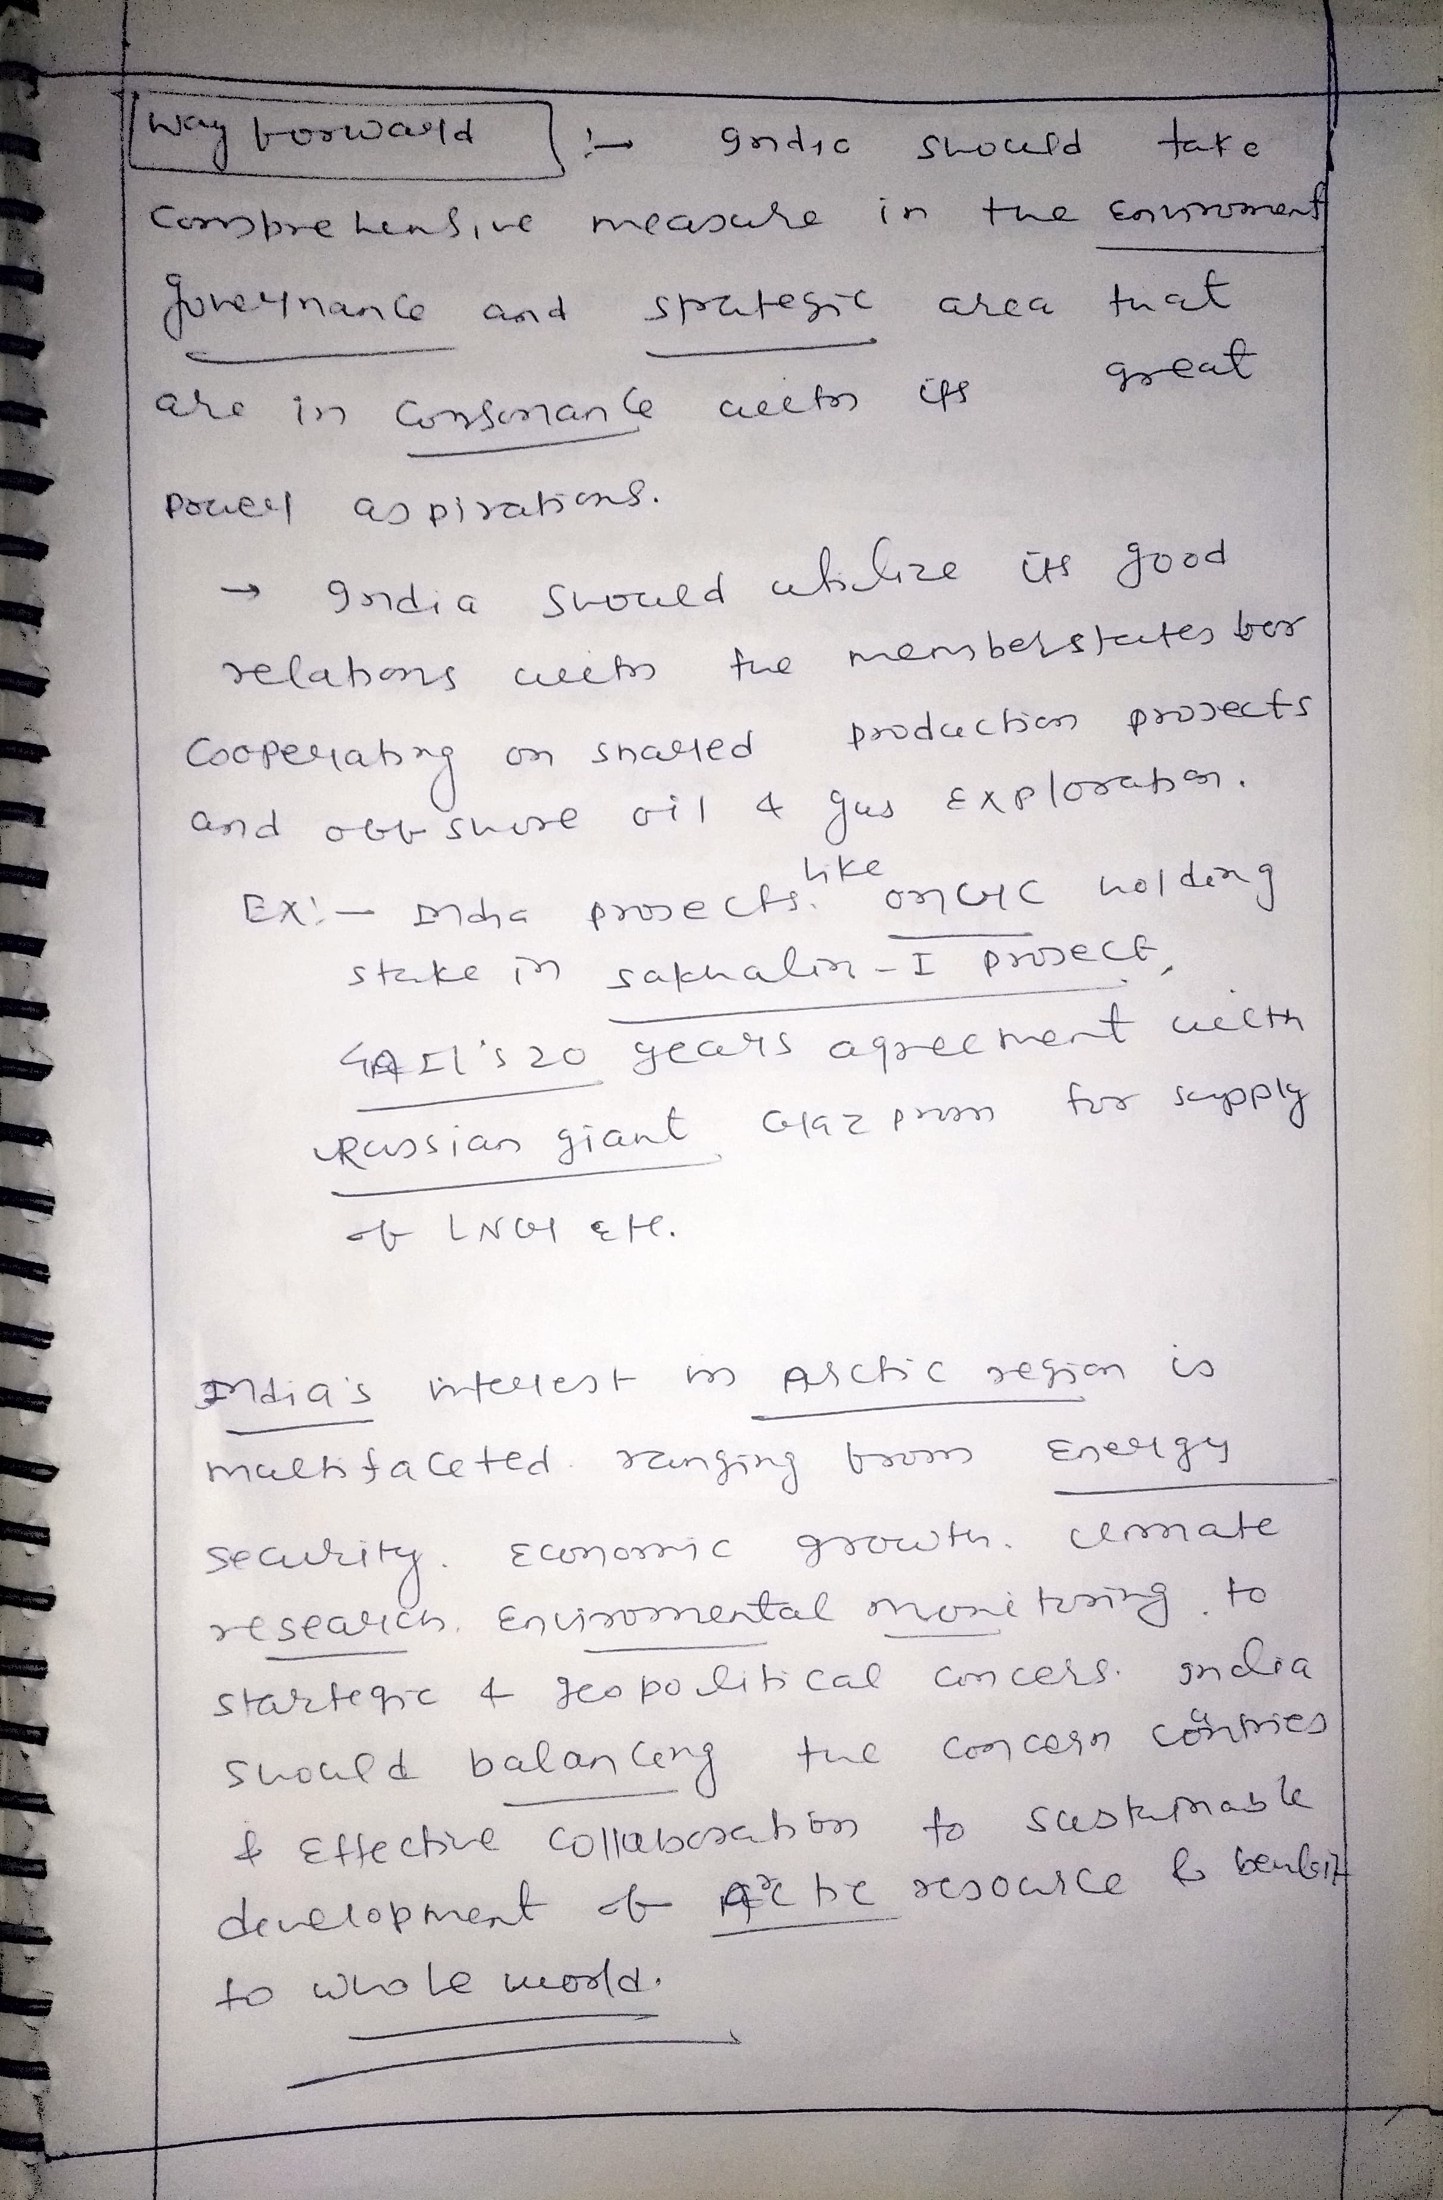 Way forward :- India should take
comprehensive measure in the Enviroment
governance and strategic area that
are in Consonance with its great
power aspirations.
→ India should utilize its good
relations with the member states for
Cooperating on shared production projects
and offshore oil & gas Exploration.
Ex:- India projects. like ONGC holding
stake in sakhalin-I project,
GAIL's 20 years agreement with
Russian giant Gazprom for supply
of LNG Etc.
India's interest in Arctic region is
multifaceted. ranging from Energy
security. Economic growth. climate
research. Enviromental monitoring. to
startegic & geopolitical concers. India
should balancing the concern countries
& Effective collaboration to sustainable
development of Arctic resource & benefit
to whole world.